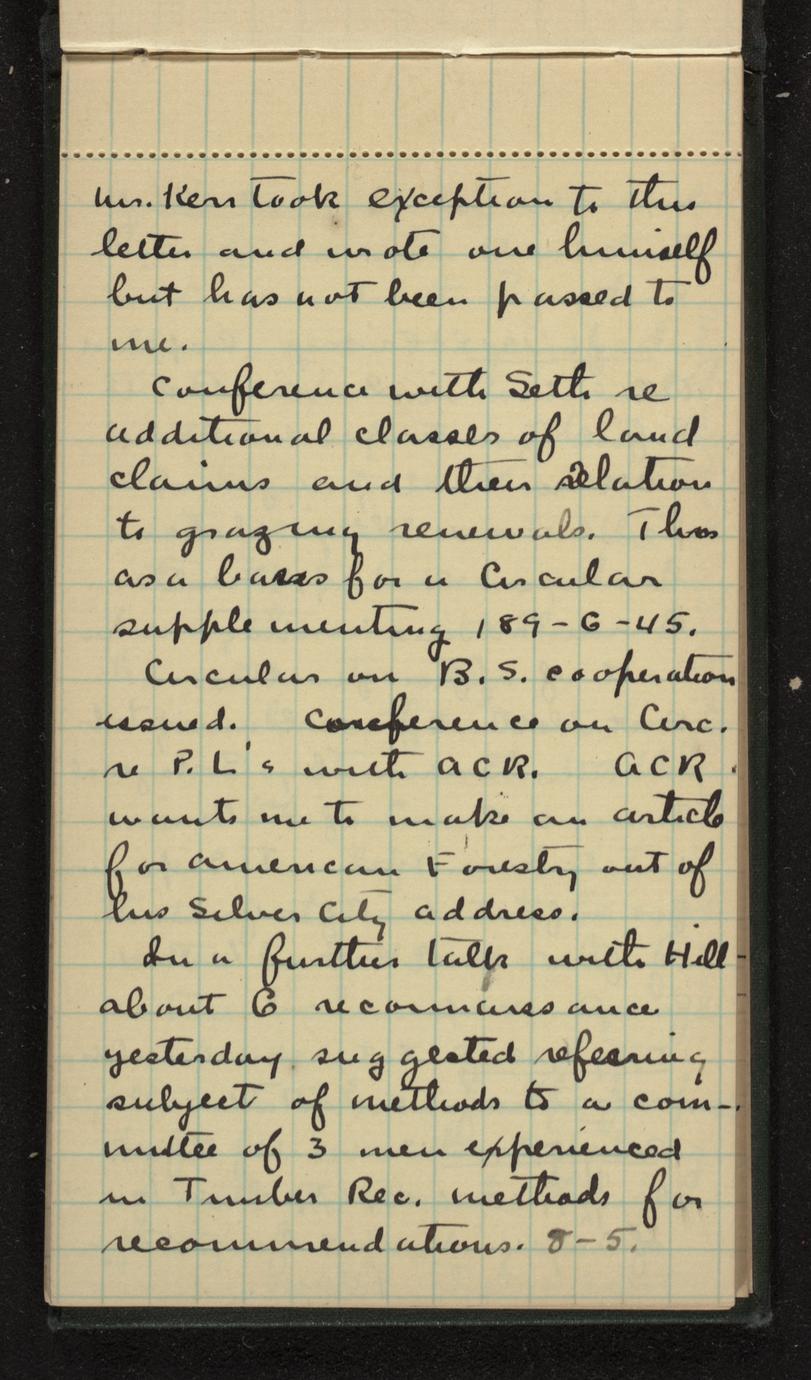 Mr. Kerr took exception to this
letter and wrote one himself
but has not been passed to
me.
Conference with Seth re
additional classes of land
claims and their relation
to grazing renewals. This
as a basis for a Circular
supplementing 189-G-45.
Circular on B.S. cooperation
issued. Conference on Circ.
re P.L's with ACR. ACR
wants me to make an article
for American Forestry out of
his Silver City address.
In a further talk with Hill
about G reconnaissance
yesterday suggested referring
subject of methods to a com-
mittee of 3 men experienced
in Timber Rec. methods for
recommendations. 8-5.